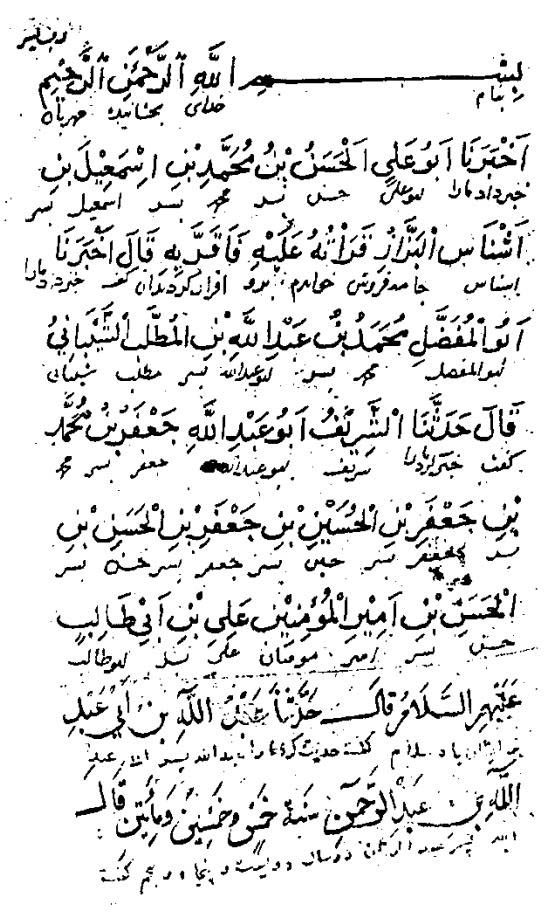 بِسْمِ اللَّهِ الرَّحْمَنِ الرَّحِيمِ
بنام خدای بخشاینده مهربان
اَخْبَرَنَا اَبُو عَلِي الْحَسَنُ بْنُ مُحَمَّدِ بْنِ اِسْمَعِيلَ بْنِ
خبر داد مارا بوعلی حسن پسر محمد پسر اسمعیل پسر
اَشْنَاسِ الْبَزَّازُ قِرَاءَةً عَلَيْهِ فَاَقَرَّ بِهِ قَالَ اَخْبَرَنَا
اشناس جامه فروش خواندم برو اقرار کرد بدان گفت خبر داد مارا
اَبُو الْمُفَضَّلِ مُحَمَّدُ بْنُ عَبْدِ اللَّهِ بْنِ الْمُطَّلِبِ الشَّيْبَانِيُّ
بوالمفضل محمد پسر بوعبدالله پسر مطلب شیبانی
قَالَ حَدَّثَنَا الشَّرِيفُ اَبُو عَبْدِ اللَّهِ جَعْفَرُ بْنُ مُحَمَّدِ
گفت شریف بوعبدالله جعفر پسر محمد
بْنِ جَعْفَرِ بْنِ الْحُسَيْنِ بْنِ جَعْفَرِ بْنِ الْحَسَنِ بْنِ
پسر جعفر پسر حسین پسر جعفر پسر حسن پسر
الْحَسَنِ بْنِ اَمِيرِ الْمُؤْمِنِينَ عَلِيِّ بْنِ اَبِي طَالِبٍ
حسن پسر امیر مومنان علی پسر بوطالب
عَلَيْهِمُ السَّلَامُ قَالَ حَدَّثَنَا عَبْدُ اللَّهِ بْنُ اَبِي عَبْدِ
بر ایشان باد سلام گفت حدیث کرد مارا عبدالله پسر عبد
اللَّهِ بْنِ عَبْدِ الرَّحْمَنِ سَنَةَ خَمْسٍ وَخَمْسِينَ وَمِائَتَيْنِ قَالَ
الله پسر عبدالرحمن در سال دویست و پنجاه و پنجم گفت